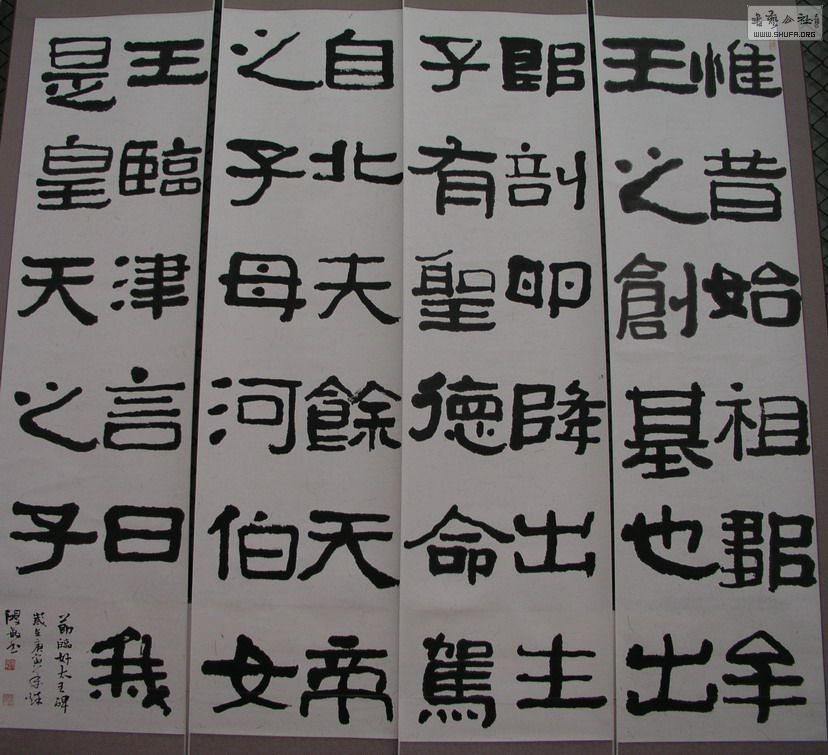 惟昔始祖鄒牟
王之創基也出
郎剖卵降出生
子有聖德命駕
自北夫餘天帝
之子母河伯女
王臨津言曰我
是皇天之子
節臨好太王碑
歲在庚寅年
書藝公社
WWW.SHUFA.ORG